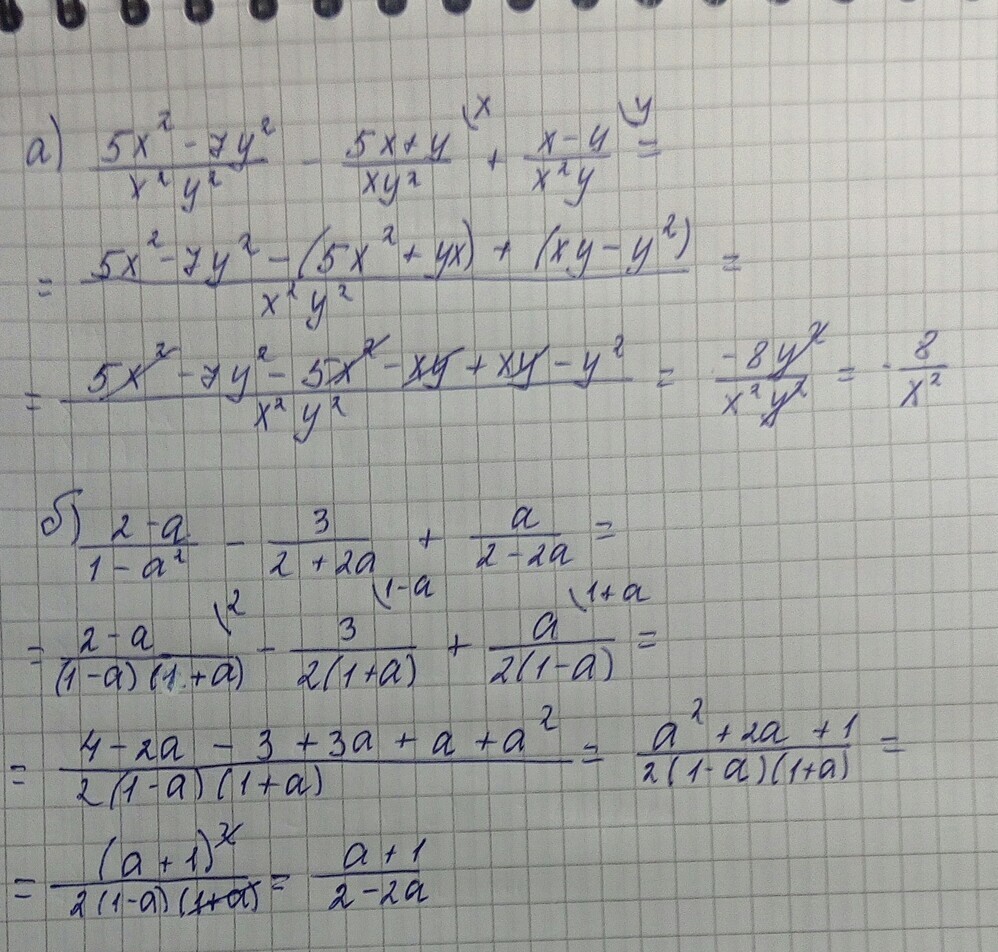 а) (5x² - 7y²)/(x²y²) - (5x+y)/(xy²) \x + (x-y)/(x²y) \y =
= (5x² - 7y² - (5x² + yx) + (xy - y²))/(x²y²) =
= (5x² - 7y² - 5x² - xy + xy - y²)/(x²y²) = (-8y²)/(x²y²) = - 8/x²
б) (2-a)/(1-a²) - 3/(2+2a) + a/(2-2a) =
= (2-a)/((1-a)(1+a)) \2 - 3/(2(1+a)) \1-a + a/(2(1-a)) \1+a =
= (4-2a-3+3a+a+a²)/(2(1-a)(1+a)) = (a²+2a+1)/(2(1-a)(1+a)) =
= (a+1)²/(2(1-a)(1+a)) = (a+1)/(2-2a)